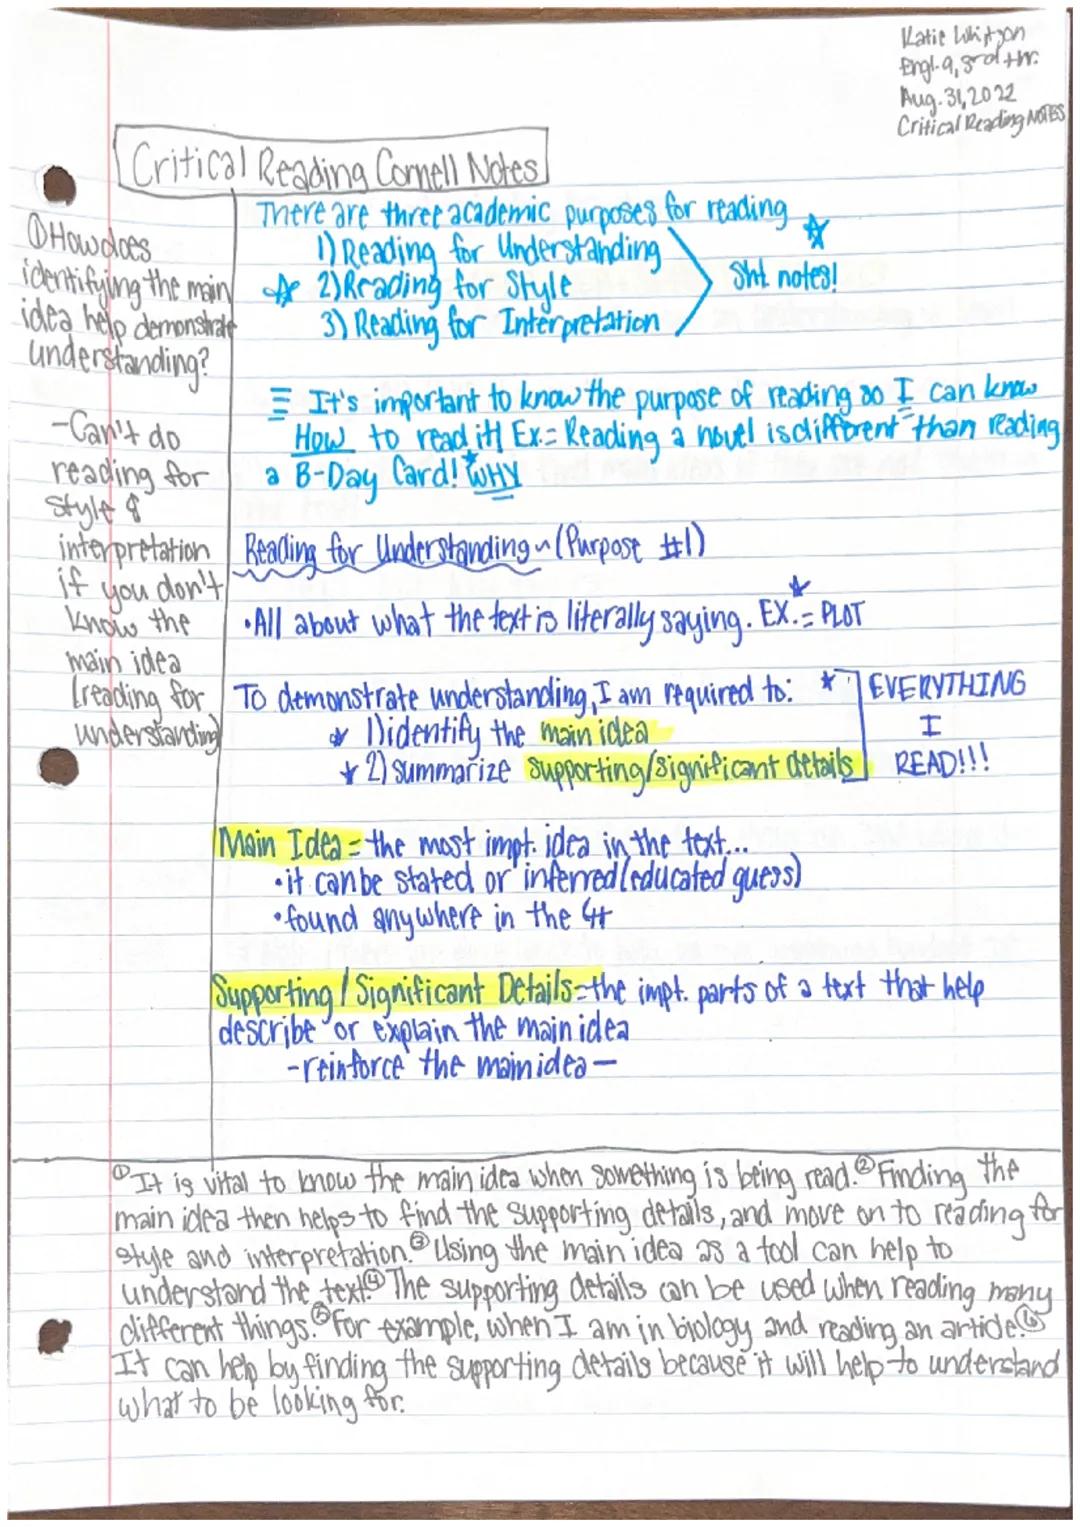 Katie
Engl. 9, 3rd hr.
Aug. 31, 2022
Critical Reading NOTES
Critical Reading Cornell Notes
① How does
identifying the main
idea help demonstrate
understanding?
-Can't do
reading for
style &
interpretation
if you don't
know the
main idea
(reading for
understanding)
There are three academic purposes for reading
1) Reading for Understanding
2) Reading for Style
3) Reading for Interpretation
Sht notes!
It's important to know the purpose of reading so I can know
How to read it! Ex.= Reading a novel is different than reading
a B-Day Card! WHY
Reading for Understanding ~ (Purpose #1)
•All about what the text is literally saying. EX.= PLOT
To demonstrate understanding, I am required to:
1) identify the main idea
2) summarize supporting/significant details
EVERYTHING
I
READ!!!
Main Idea = the most impt. idea in the text...
•it can be stated or inferred (educated guess)
•found anywhere in the
Supporting/Significant Details = the impt. parts of a text that help
describe or explain the main idea
-reinforce the main idea-
① It is vital to know the main idea when something is being read. ② Finding the
main idea then helps to find the supporting details, and move on to reading for
style and interpretation. ③ Using the main idea as a tool can help to
understand the text. ④ The supporting details can be used when reading many
different things. ⑤ For example, when I am in biology and reading an article. ⑥
It can help by finding the supporting details because it will help to understand
what to be looking for.